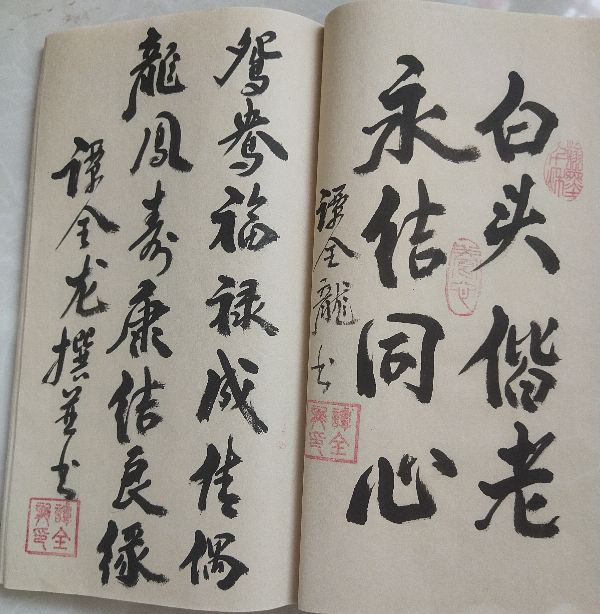 白头偕老
永结同心
谭全龍书
譚全龍印
鸳鸯福禄成佳偶
龍凤寿康结良缘
谭全龙撰并书
譚全龍印